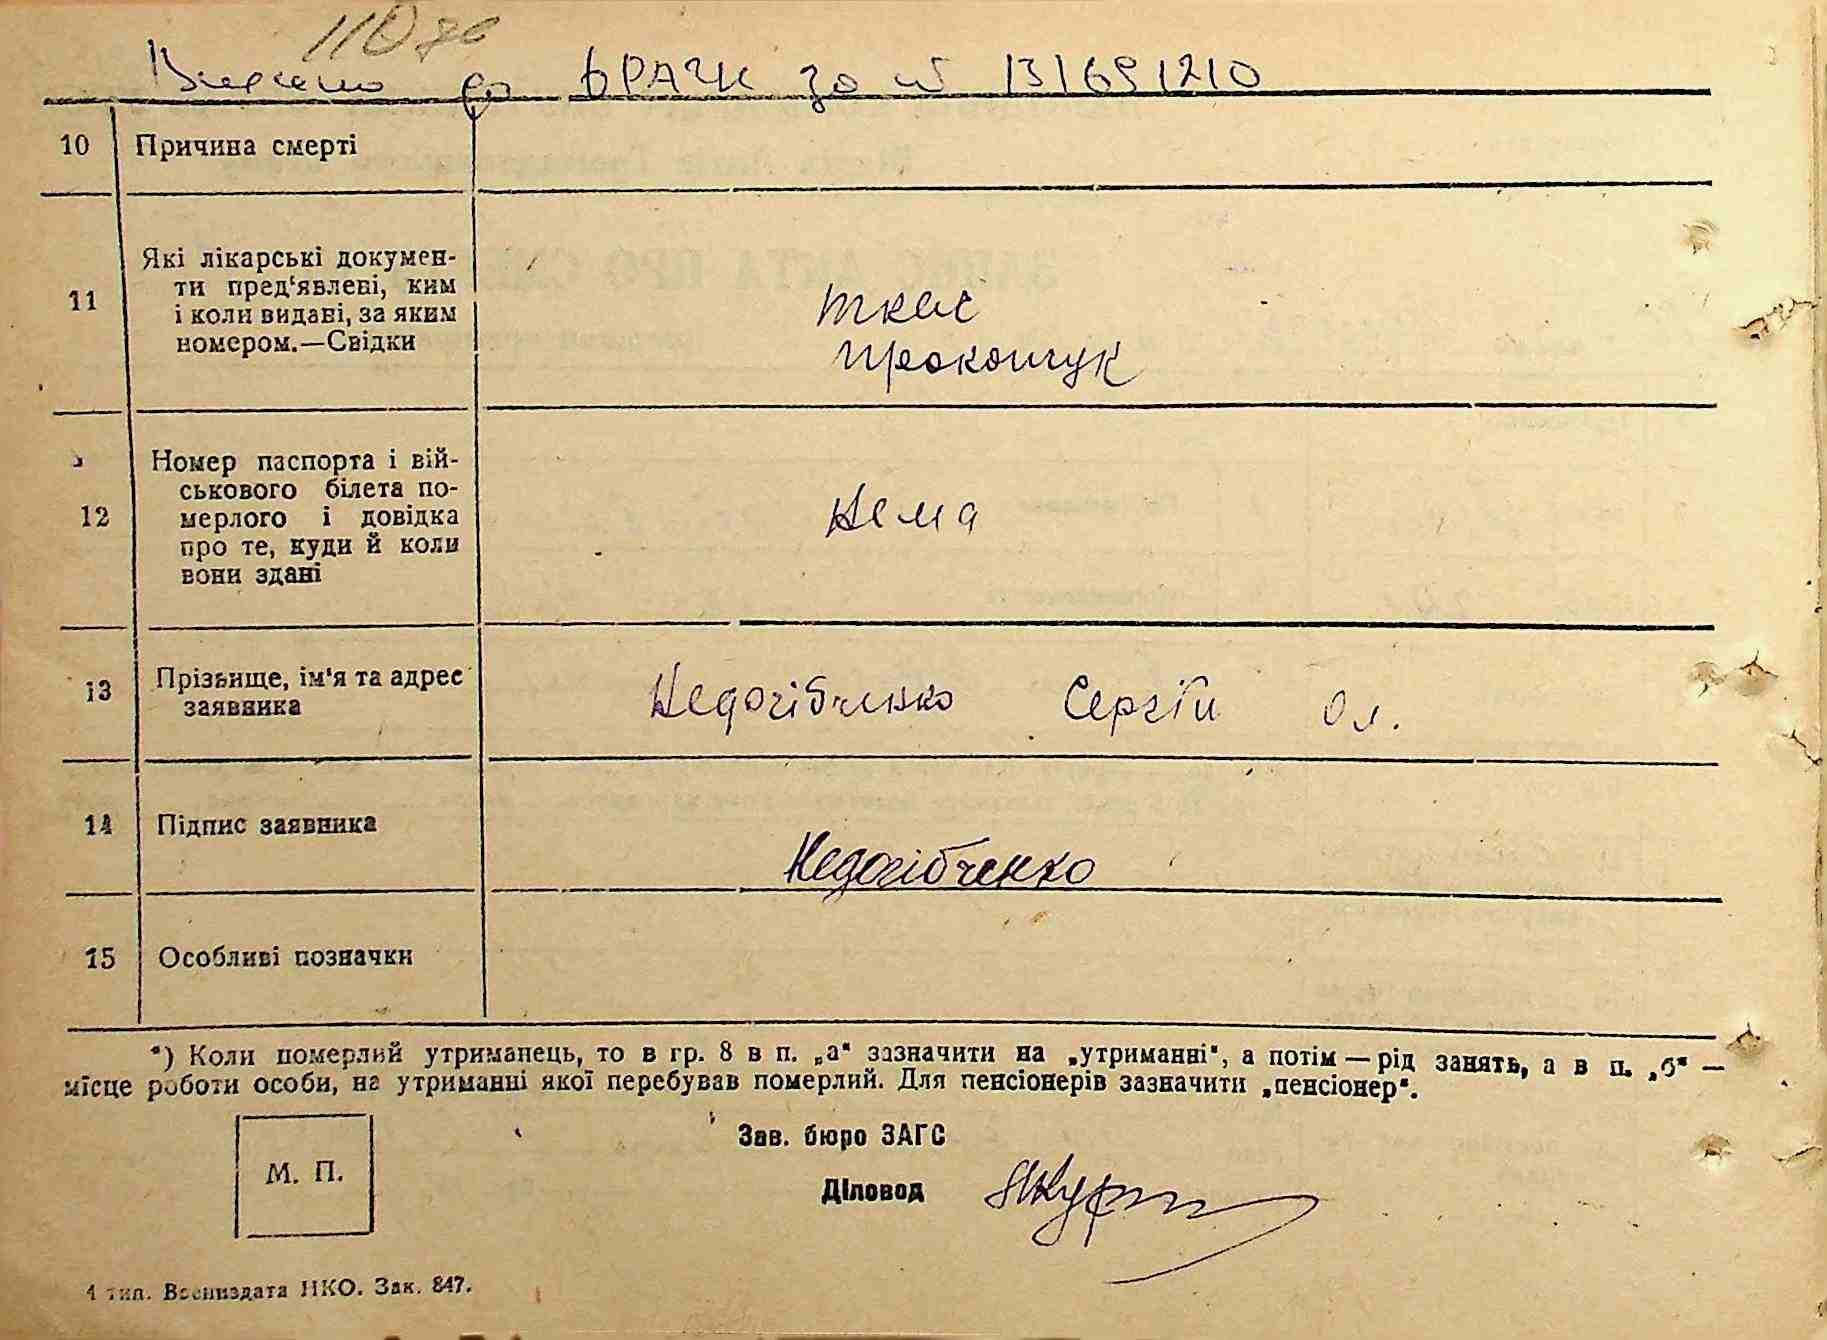 Внесено до ДРАЦС за № 131691210
10 Причина смерті
11 Які лікарські докумен-
ти пред‘явлені, ким
і коли видані, за яким
номером.—Свідки
Прокопчук
12 Номер паспорта і вій-
ськового білета по-
мерлого і довідка
про те, куди й коли
вони здані
Нема
13 Прізвище, ім‘я та адрес
заявника
Недогібченко Сергій Ол.
14 Підпис заявника
Недогібченко
15 Особливі позначки
*) Коли померлий утриманець, то в гр. 8 в п. „а“ зазначити на „утриманні“, а потім — рід занять, а в п. „б“ —
місце роботи особи, на утриманні якої перебував померлий. Для пенсіонерів зазначити „пенсіонер“.
Зав. бюро ЗАГС
М. П.
Діловод
4 тип. Воениздата НКО. Зак. 847.